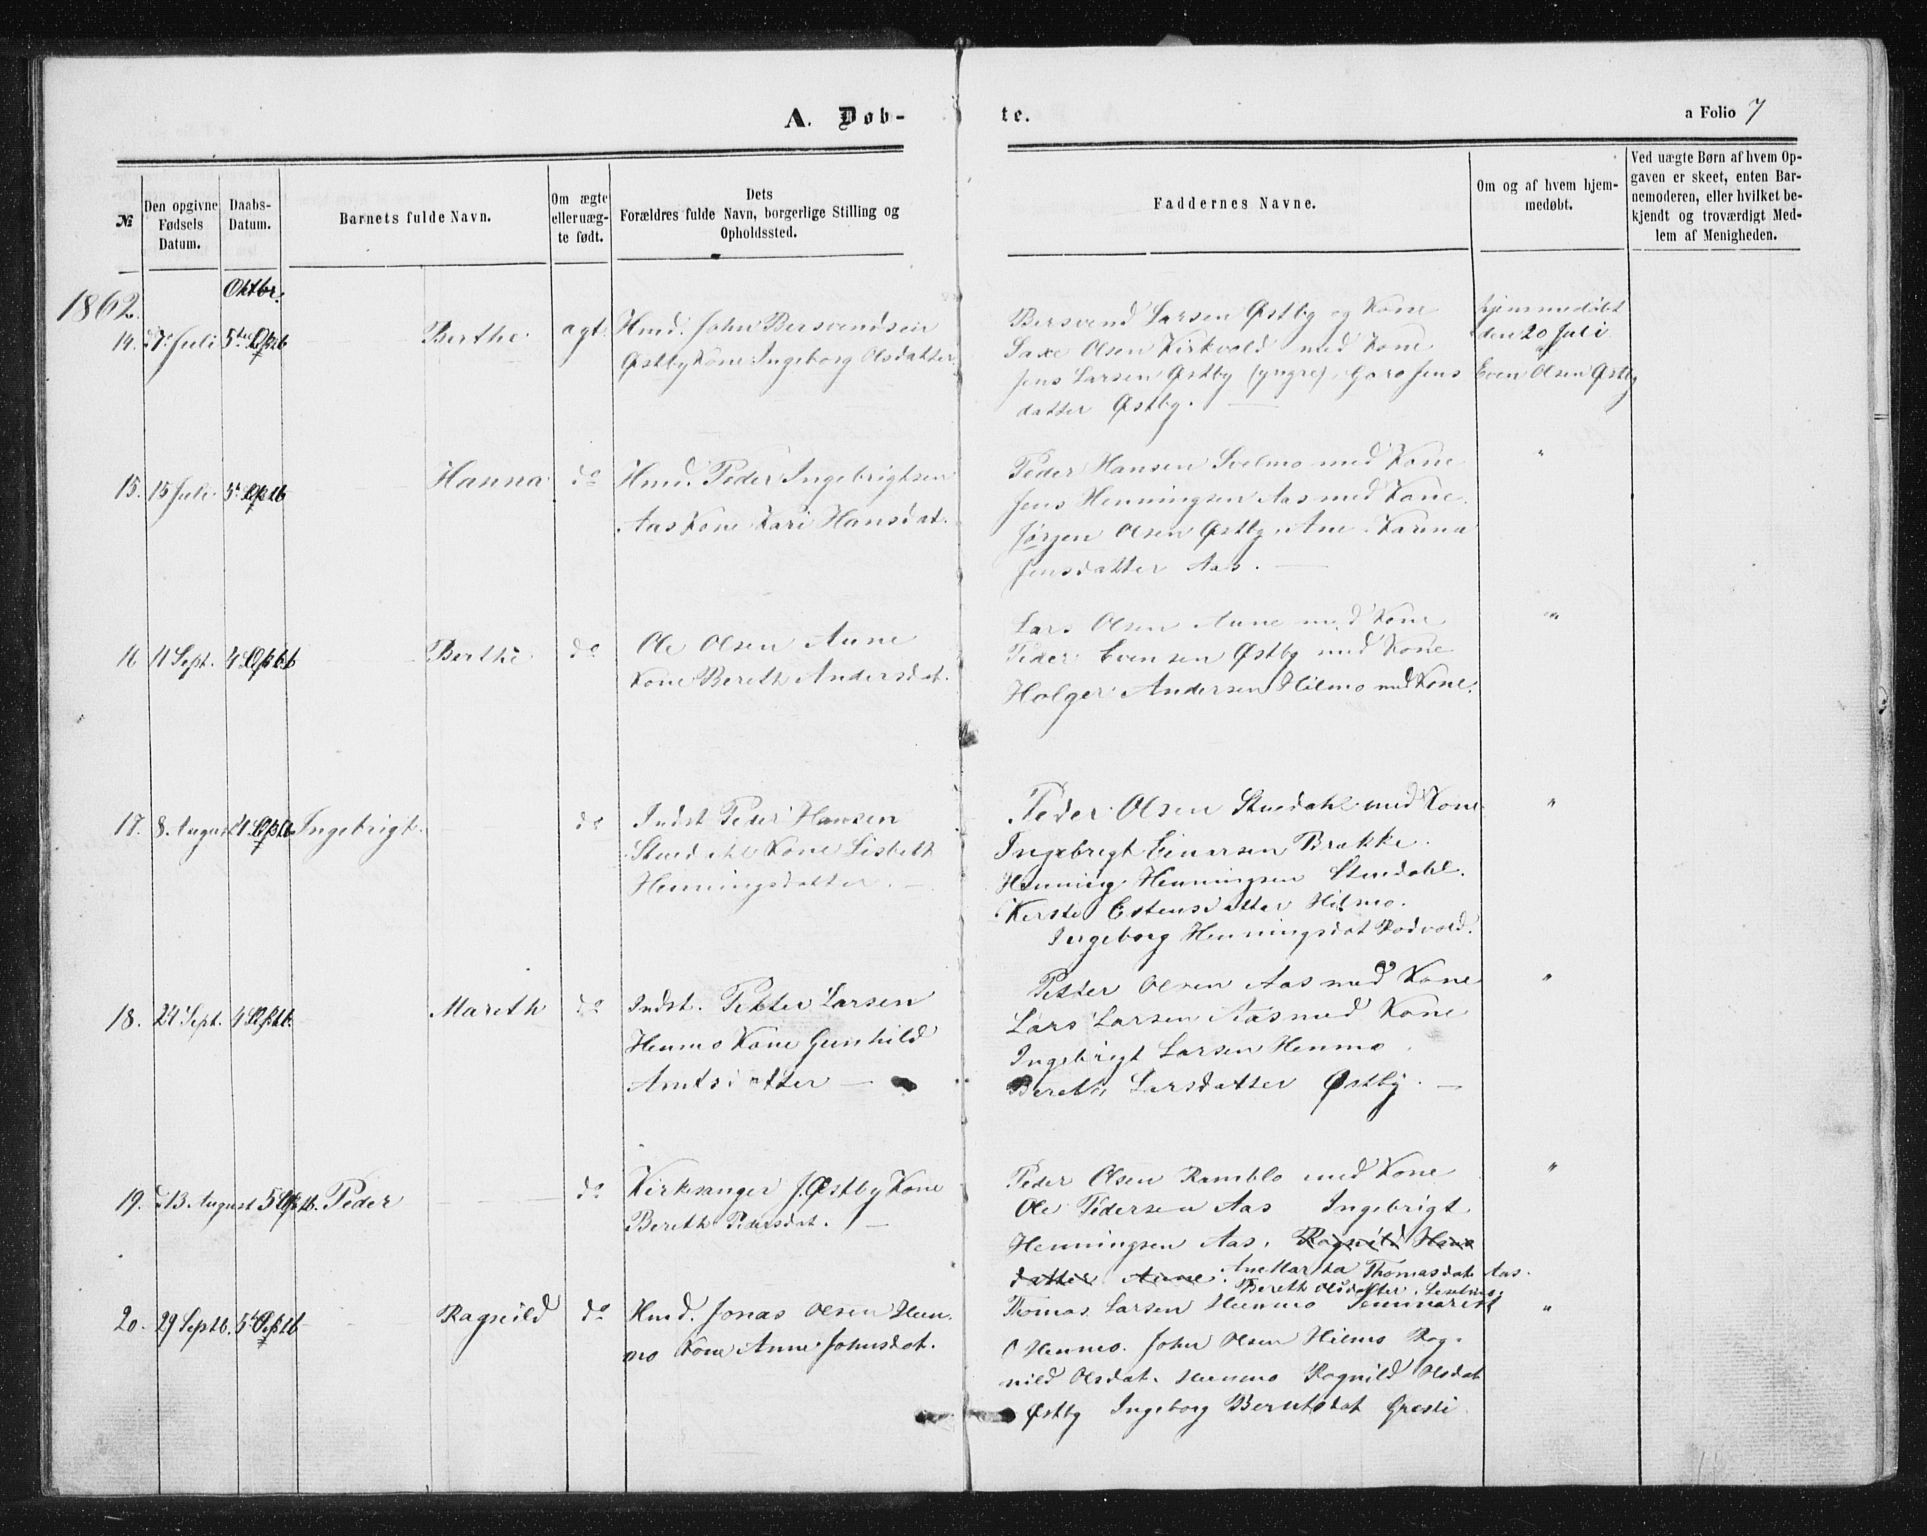 A. Døb-
te.
a Folio 7
№
Den opgivne Fødsels Datum.
Daabs-Datum.
Barnets fulde Navn.
Om ægte eller uæg-te født.
Dets
Forældres fulde Navn, borgerlige Stilling og
Opholdssted.
Faddernes Navne.
Om og af hvem hjem-
medøbt.
Ved uægte Børn af hvem Op-
gaven er skeet, enten Bar-
nemoderen, eller hvilket be-
kjendt og troværdigt Med-
lem af Menigheden.
1862.
Oktbr.
14. 7 Juli 5te Berthe ægt. Hmd. John Bersvendsen
Østby Kone Ingeborg Olsdatter
Bersvend Larsen Østby og Kone
Saxe Olsen Kirkvold med Kone
Jens Larsen Østby (yngre), Guro Jens
datter Østby.
hjemmedøbt
den 20 Juli
af
Even Olsen Østby
15. 15 Juli 5 Hanna do Hmd. Peder Ingebrigtsen
Aas Kone Kari Hansdat.
Peder Hansen Svelmo med Kone
Jens Henningsen Aas med Kone.
Jørgen Olsen Østby, Ane Karina
Jensdatter Aas.
"
16 11 Sept. 4 Berthe do Ole Olsen Aune
Kone Bereth Andersdat.
Lars Olsen Aune med Kone
Peder Evensen Østby med Kone
Holger Andersen Hilmo med Kone.
"
17. 8. August 4 Ingebrigt. do Indst Peder Hansen
Stuedahl Kone Lisbeth
Henningsdatter.
Peder Olsen Stuedahl med Kone
Ingebrigt Einarsen Brække.
Henning Henningsen Stuedahl.
Kersti Estensdatter Hilmo.
Ingeborg Henningsdat Rodvold.
"
18. 24 Sept. 4 Mareth do Indst. Petter Larsen
Henmo Kone Gunhild
Amtsdatter
Petter Olsen Aas med Kone
Lars Larsen Aas med Kone
Ingebrigt Larsen Henmo.
Bereth Larsdatter Østby.
"
19. 13. August 5 Peder do Kirksanger J. Østby Kone
Bereth Pedersdat.
Peder Olsen Ramblo med Kone
Ole Pedersen Aas Ingebrigt
Henningsen Aas. Ragnild
datter Aune. Ane Marta Thomasdat Aas.
Bereth Olsdatter
"
20. 29 Septb. 5 Ragnild do Hmd. Jonas Olsen Hen-
mo Kone Anne Johnsdat.
Thomas Larsen Henmo Seminarist
O Henmo. John Olsen Hilmo Rag-
nild Olsdat. Henmo Ragnild Olsdat
Østby Ingeborg Berntsdat Græsli
"